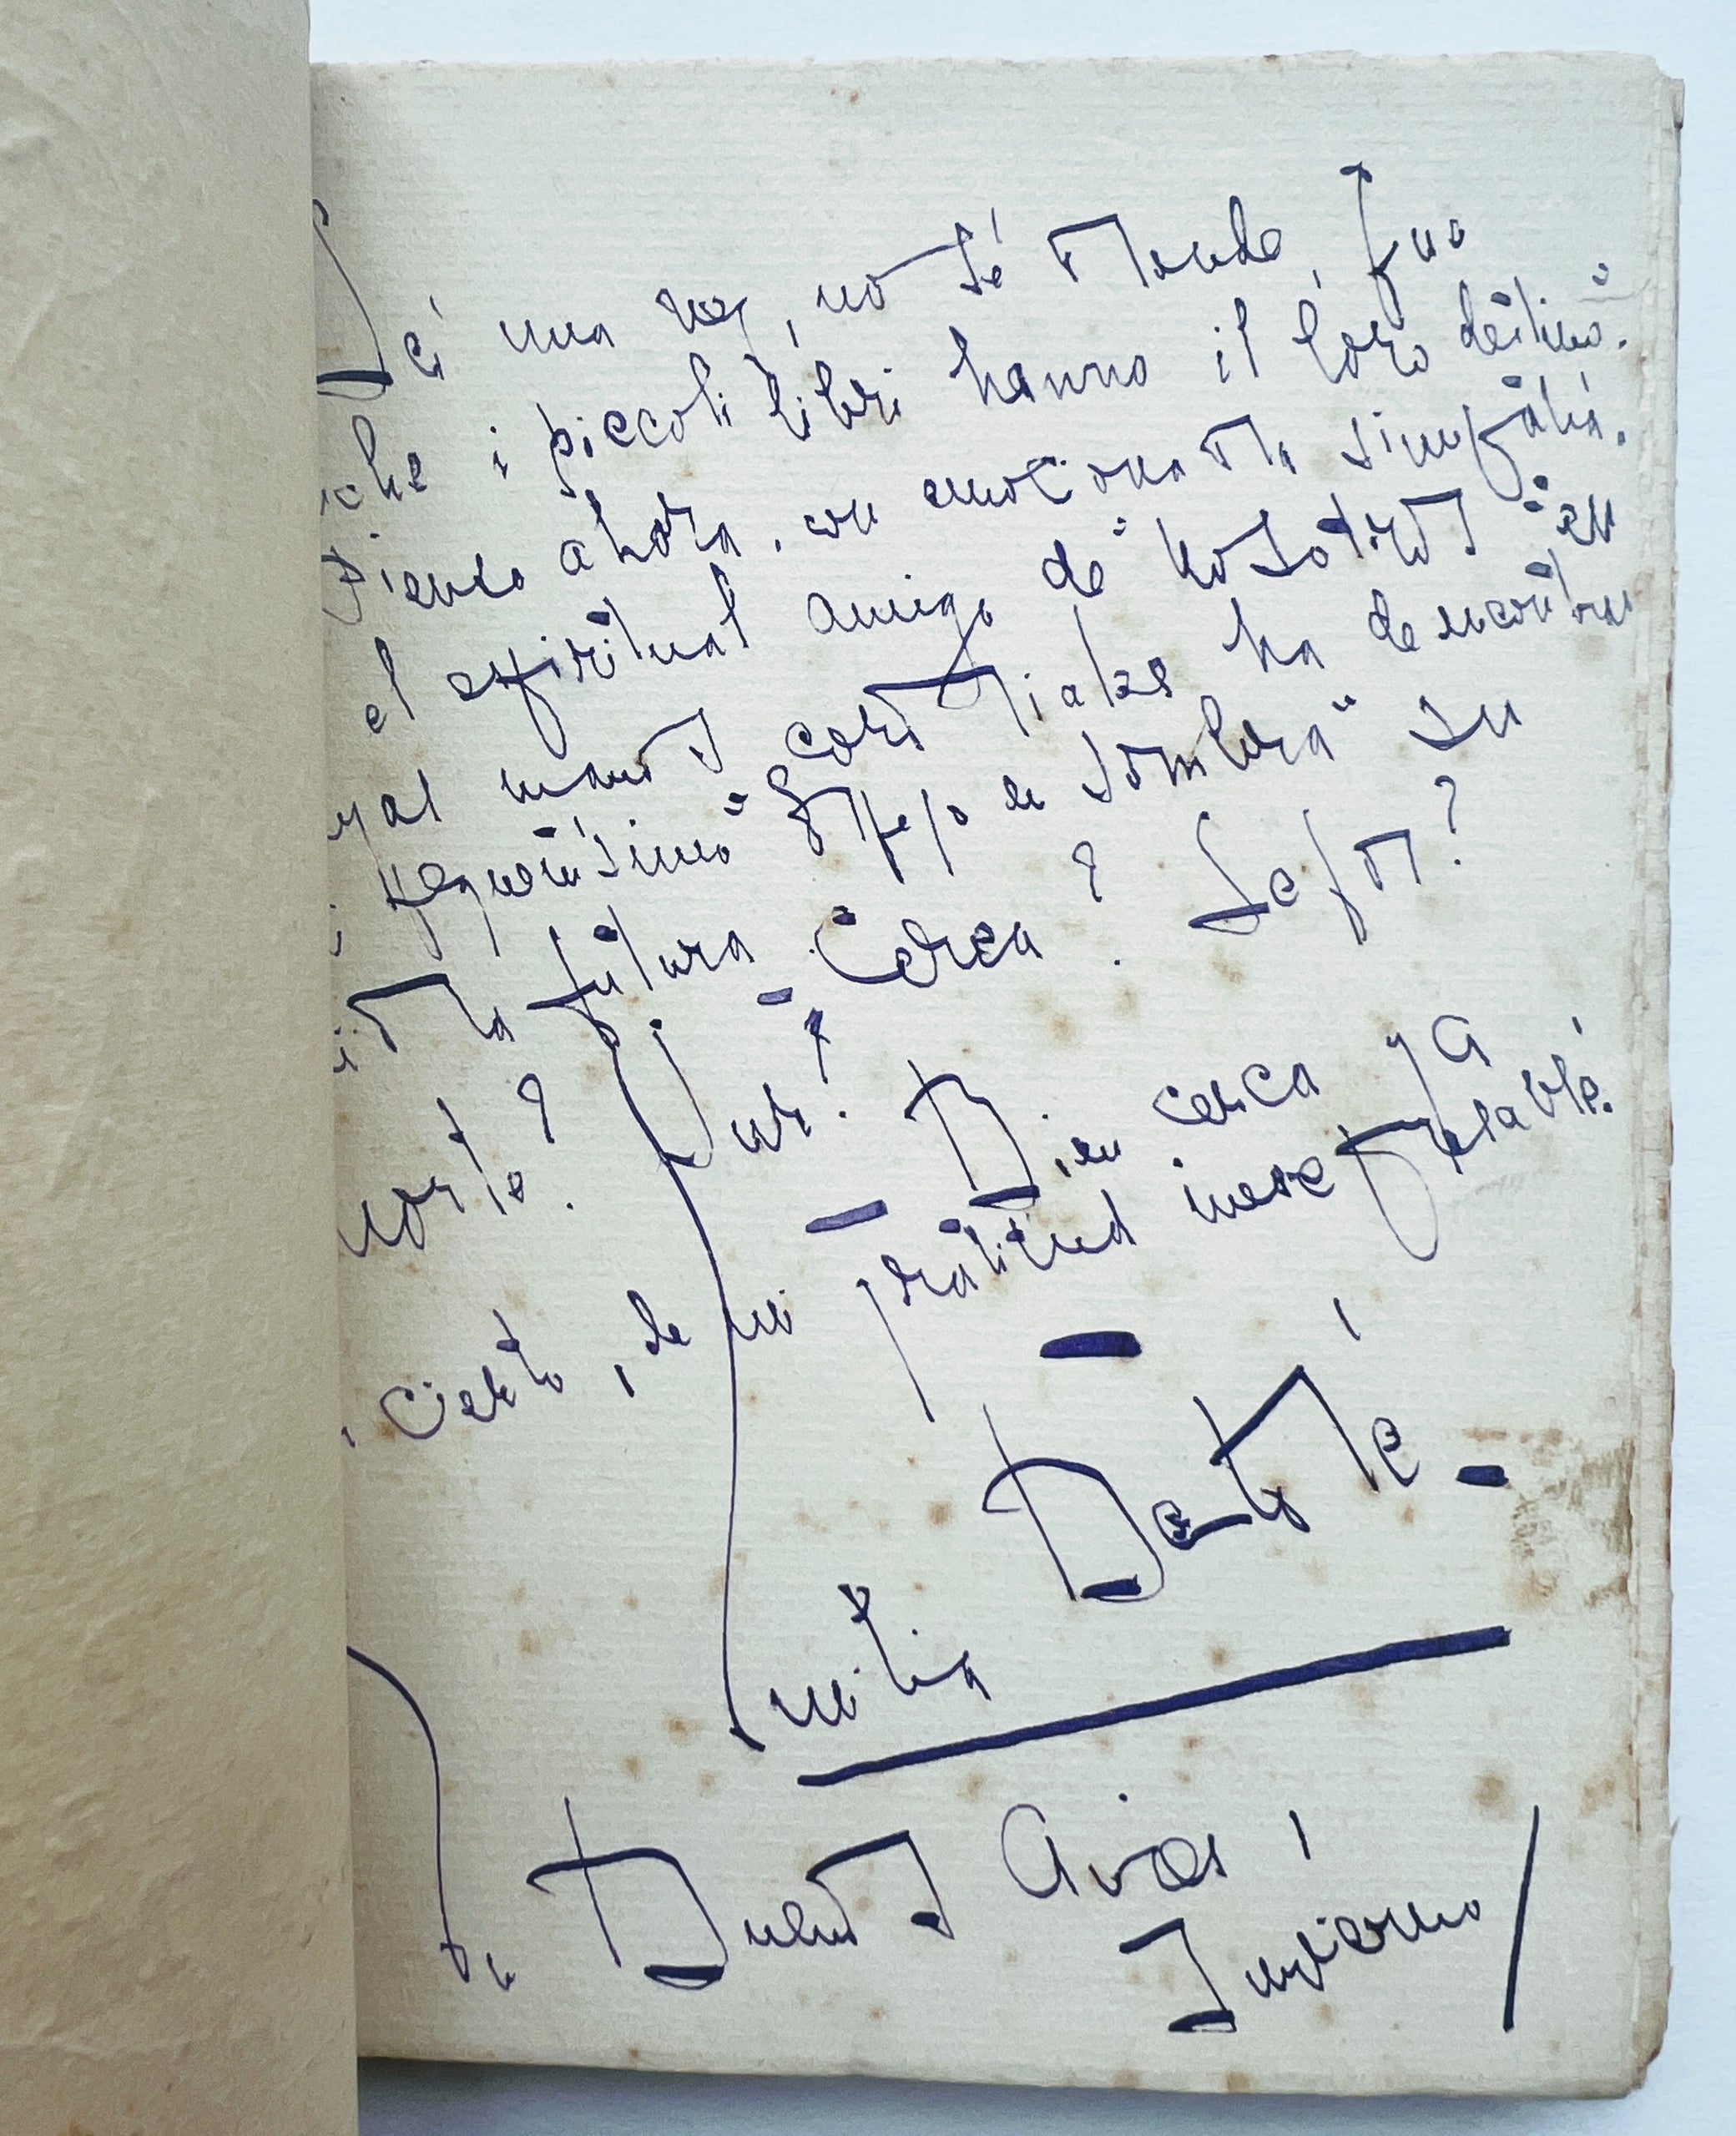 Leí una vez, no sé donde, que
che i piccoli libri hanno il loro destino.
Pienso ahora, con emocionada simpatía,
el espiritual amigo de nosotros en
yas manos cordiales ha de encontrar
pequeñísimo "Espejo en Sombra" su
ida futura - Cerca? Lejos?
norte? Sur? - Bien cerca ya
cierto, de mi gratitud inexpresable.
Bertolé -
Emilia
Buenos Aires
Invierno/